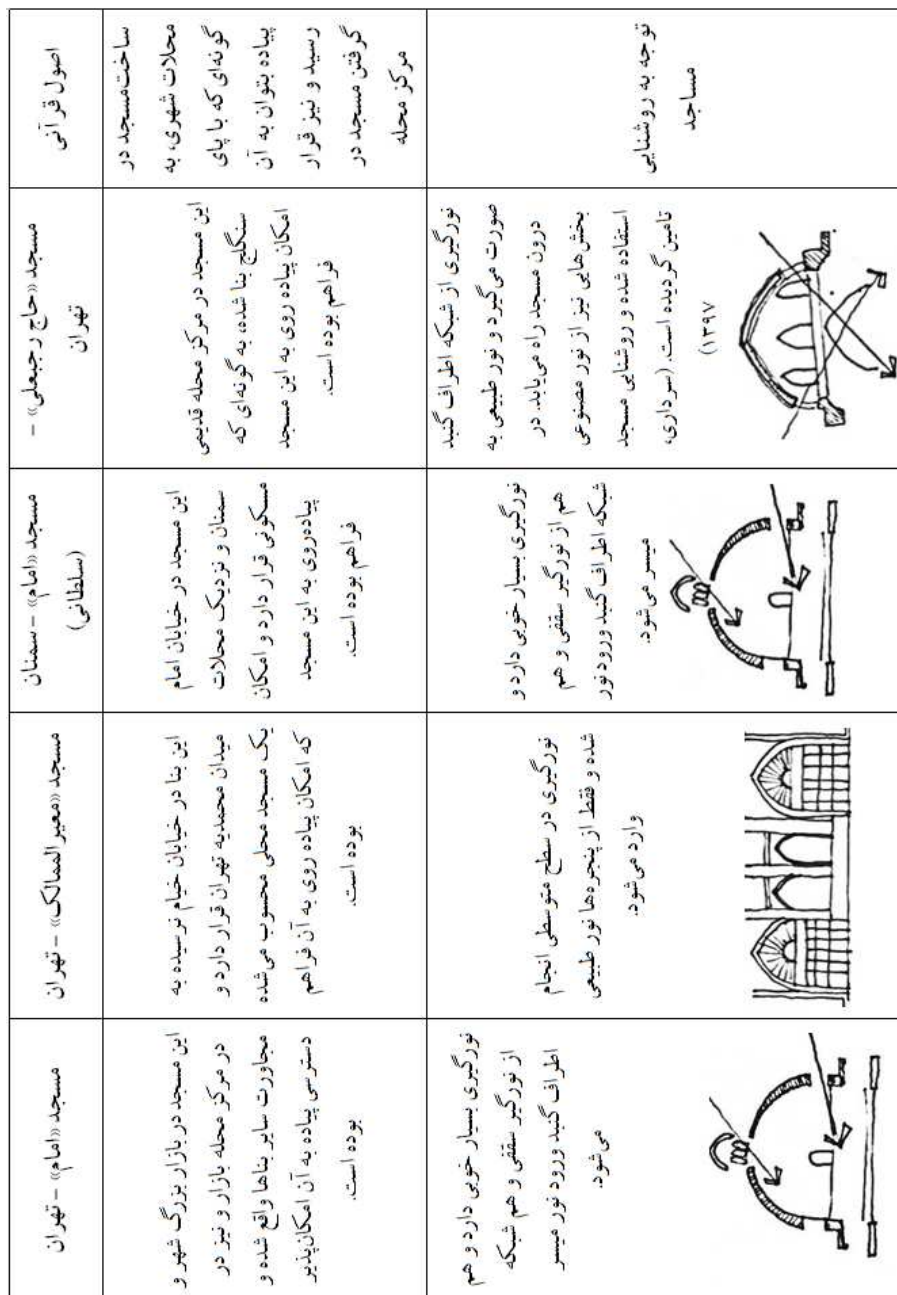 اصول قرآنی
مسجد «حاج رجبعلی» –
تهران
مسجد «امام» – سمنان
(سلطانی)
مسجد «معیرالممالک» – تهران
مسجد «امام» – تهران
ساخت‌مسجد در
محلات شهری، به
گونه‌ای که با پای
پیاده بتوان به آن
رسید و نیز قرار
گرفتن مسجد در
مرکز محله
این مسجد در مرکز محله قدیمی
سنگلج بنا شده، به گونه‌ای که
امکان پیاده روی به این مسجد
فراهم بوده است.
این مسجد در خیابان امام
سمنان و نزدیک محلات
مسکونی قرار دارد و امکان
پیاده‌روی به این مسجد
فراهم بوده است.
این بنا در خیابان خیام نرسیده به
میدان محمدیه تهران قرار دارد و
یک مسجد محلی محسوب می‌شده
که امکان پیاده روی به آن فراهم
بوده است.
این مسجد در بازار بزرگ شهر و
در مرکز محله بازار و نیز در
مجاورت سایر بناها واقع شده و
دسترسی پیاده به آن امکان‌پذیر
بوده است.
توجه به روشنایی
مساجد
نورگیری از شبکه اطراف گنبد
صورت می‌گیرد و نور طبیعی به
درون مسجد راه می‌یابد. در
بخش‌هایی نیز از نور مصنوعی
استفاده شده و روشنایی مسجد
تامین گردیده است. (سرداری،
۱۳۹۷)
نورگیری بسیار خوبی دارد و
هم از نورگیر سقفی و هم
شبکه اطراف گنبد ورود نور
میسر می‌شود.
نورگیری در سطح متوسطی انجام
شده و فقط از پنجره‌ها نور طبیعی
وارد می‌شود.
نورگیری بسیار خوبی دارد و هم
از نورگیر سقفی و هم شبکه
اطراف گنبد ورود نور میسر
می‌شود.